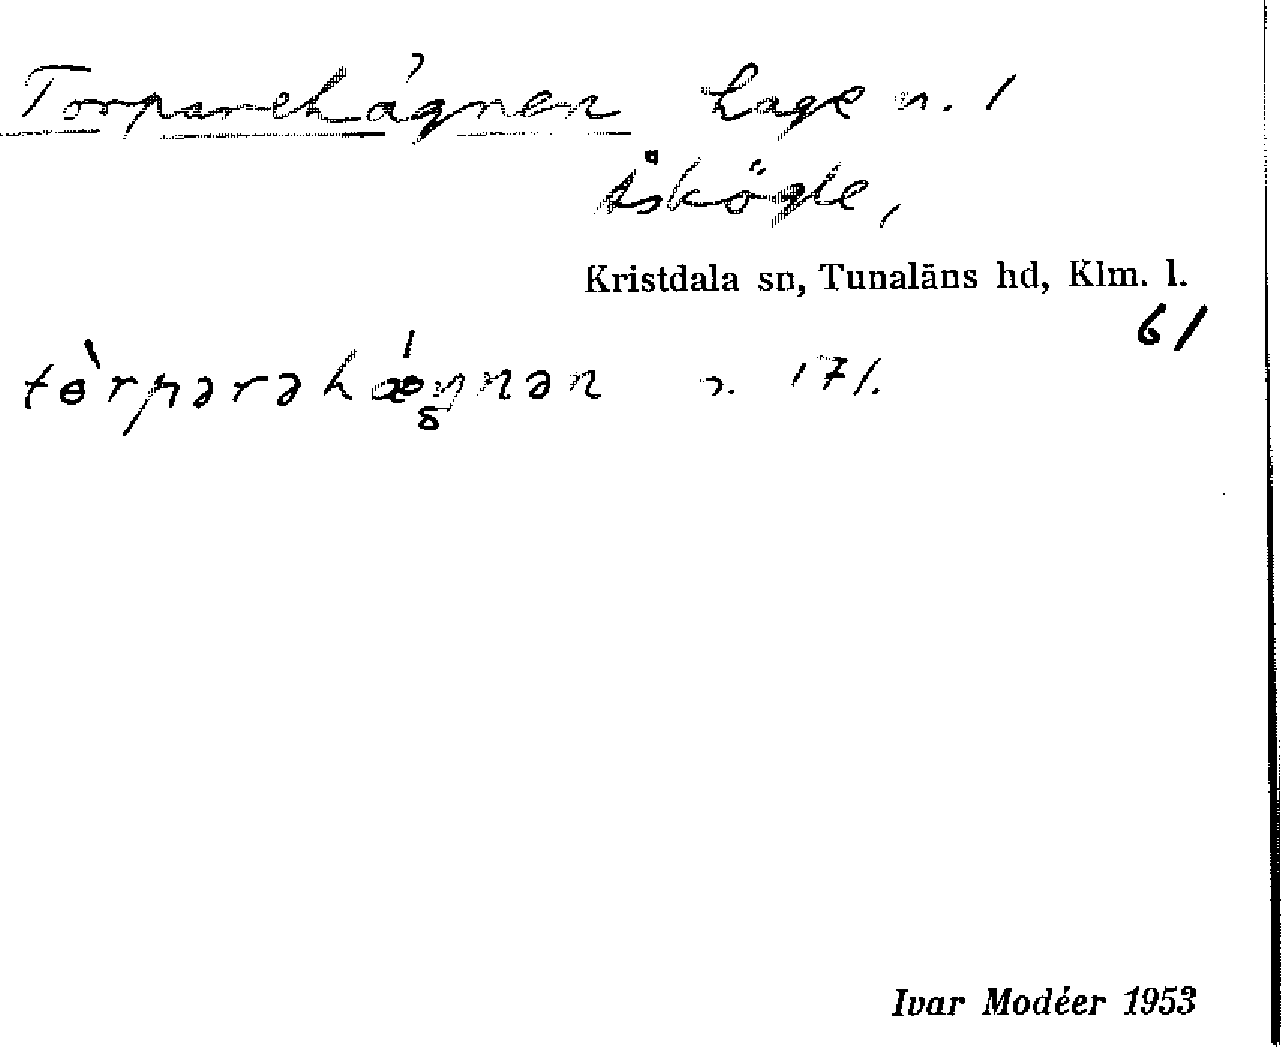 Torparehägnen hage n. 1
Åskögle,
Kristdala sn, Tunaläns hd, Klm. l.
61
tɵ̀rpərəhǽgnən s. 171.
Ivar Modéer 1953